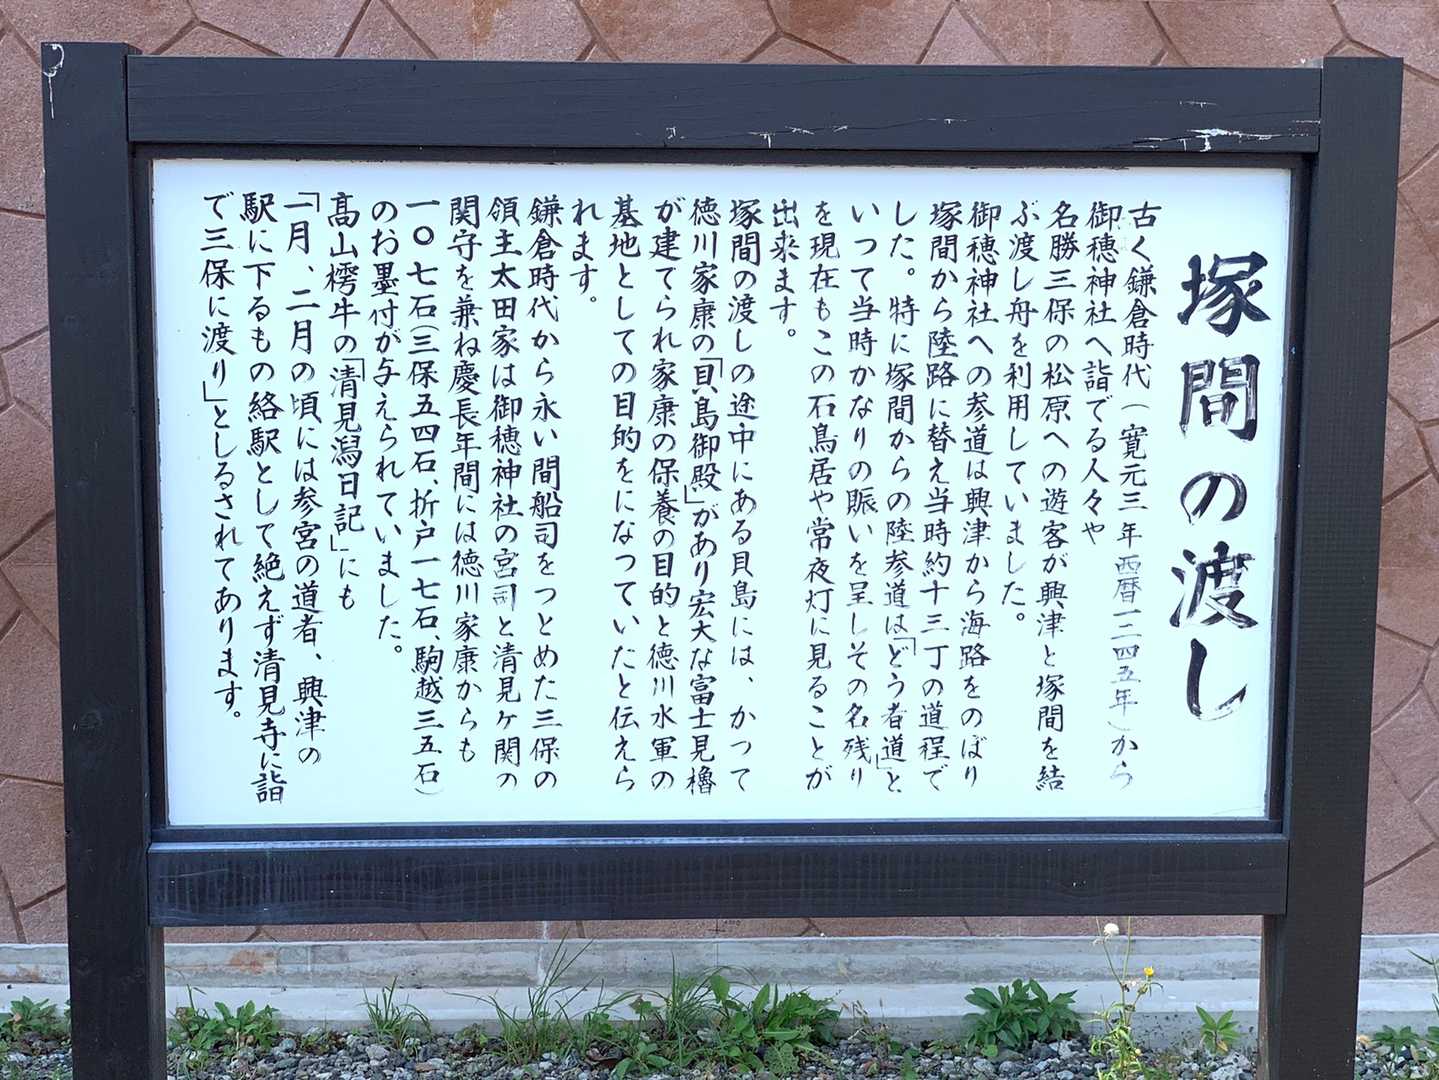 塚間の渡し
古く鎌倉時代(寛元三年西暦一二四五年)から
御穂神社へ詣でる人々や
名勝三保の松原への遊客が興津と塚間を結
ぶ渡し舟を利用していました。
御穂神社への参道は興津から海路をのぼり
塚間から陸路に替え当時約十三丁の道程で
した。特に塚間からの陸参道は「どう者道」と
いって当時かなりの賑いを呈しその名残り
を現在もこの石鳥居や常夜灯に見ることが
出来ます。
塚間の渡しの途中にある貝島には、かつて
徳川家康の「貝島御殿」があり宏大な富士見櫓
が建てられ家康の保養の目的と徳川水軍の
基地としての目的をになっていたと伝えら
れます。
鎌倉時代から永い間船司をつとめた三保の
領主太田家は御穂神社の宮司と清見ヶ関の
関守を兼ね慶長年間には徳川家康からも
一〇七石(三保五四石、折戸一七石、駒越三五石)
のお墨付が与えられていました。
高山樗牛の「清見潟日記」にも
「一月、二月の頃には参宮の道者、興津の
駅に下るもの絡駅として絶えず清見寺に詣
で三保に渡り」としるされてあります。